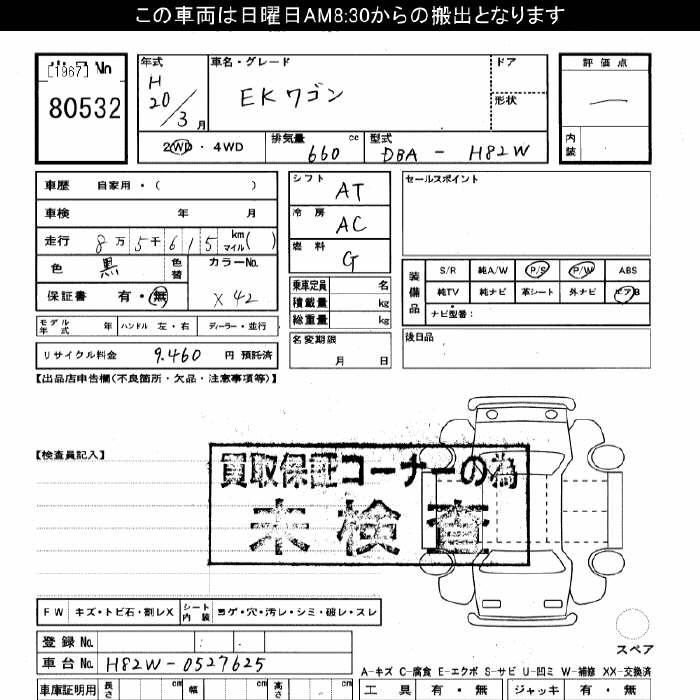 この車両は日曜日AM8:30からの搬出となります
[1967]
80532
年式
H
20/3 月
車名・グレード
EKワゴン
ドア
形状
評価点
内装
2WD・4WD
排気量 660 cc
型式 DBA - H82W
車歴 自家用・( )
車検 年 月
走行 8万5千615 km マイル( )
色 黒 色替
カラーNo. X42
保証書 有・無
モデル年式 年 ハンドル 左・右 ディーラー・並行
リサイクル料金 9.460 円 預託済
シフト AT
冷房 AC
燃料 G
乗車定員 名
積載量 kg
総重量 kg
名変期限 月 日
セールスポイント
装備品
S/R 純A/W P/S P/W ABS
純TV 純ナビ 革シート 外ナビ エアB
ナビ型番:
後日品
【出品店申告欄(不良箇所・欠品・注意事項等)】
【検査員記入】
買取保証コーナーの為
未検査
FW キズ・トビ石・割レX シート内装 ヨゲ・穴・汚レ・シミ・破レ・スレ
登録No.
車台No. H82W-0527625
スペア
A-キズ C-腐食 E-エクボ S-サビ U-凹ミ W-補修 XX-交換済
車庫証明用 長さ cm 幅 cm 高さ cm
工具 有・無 ジャッキ 有・無